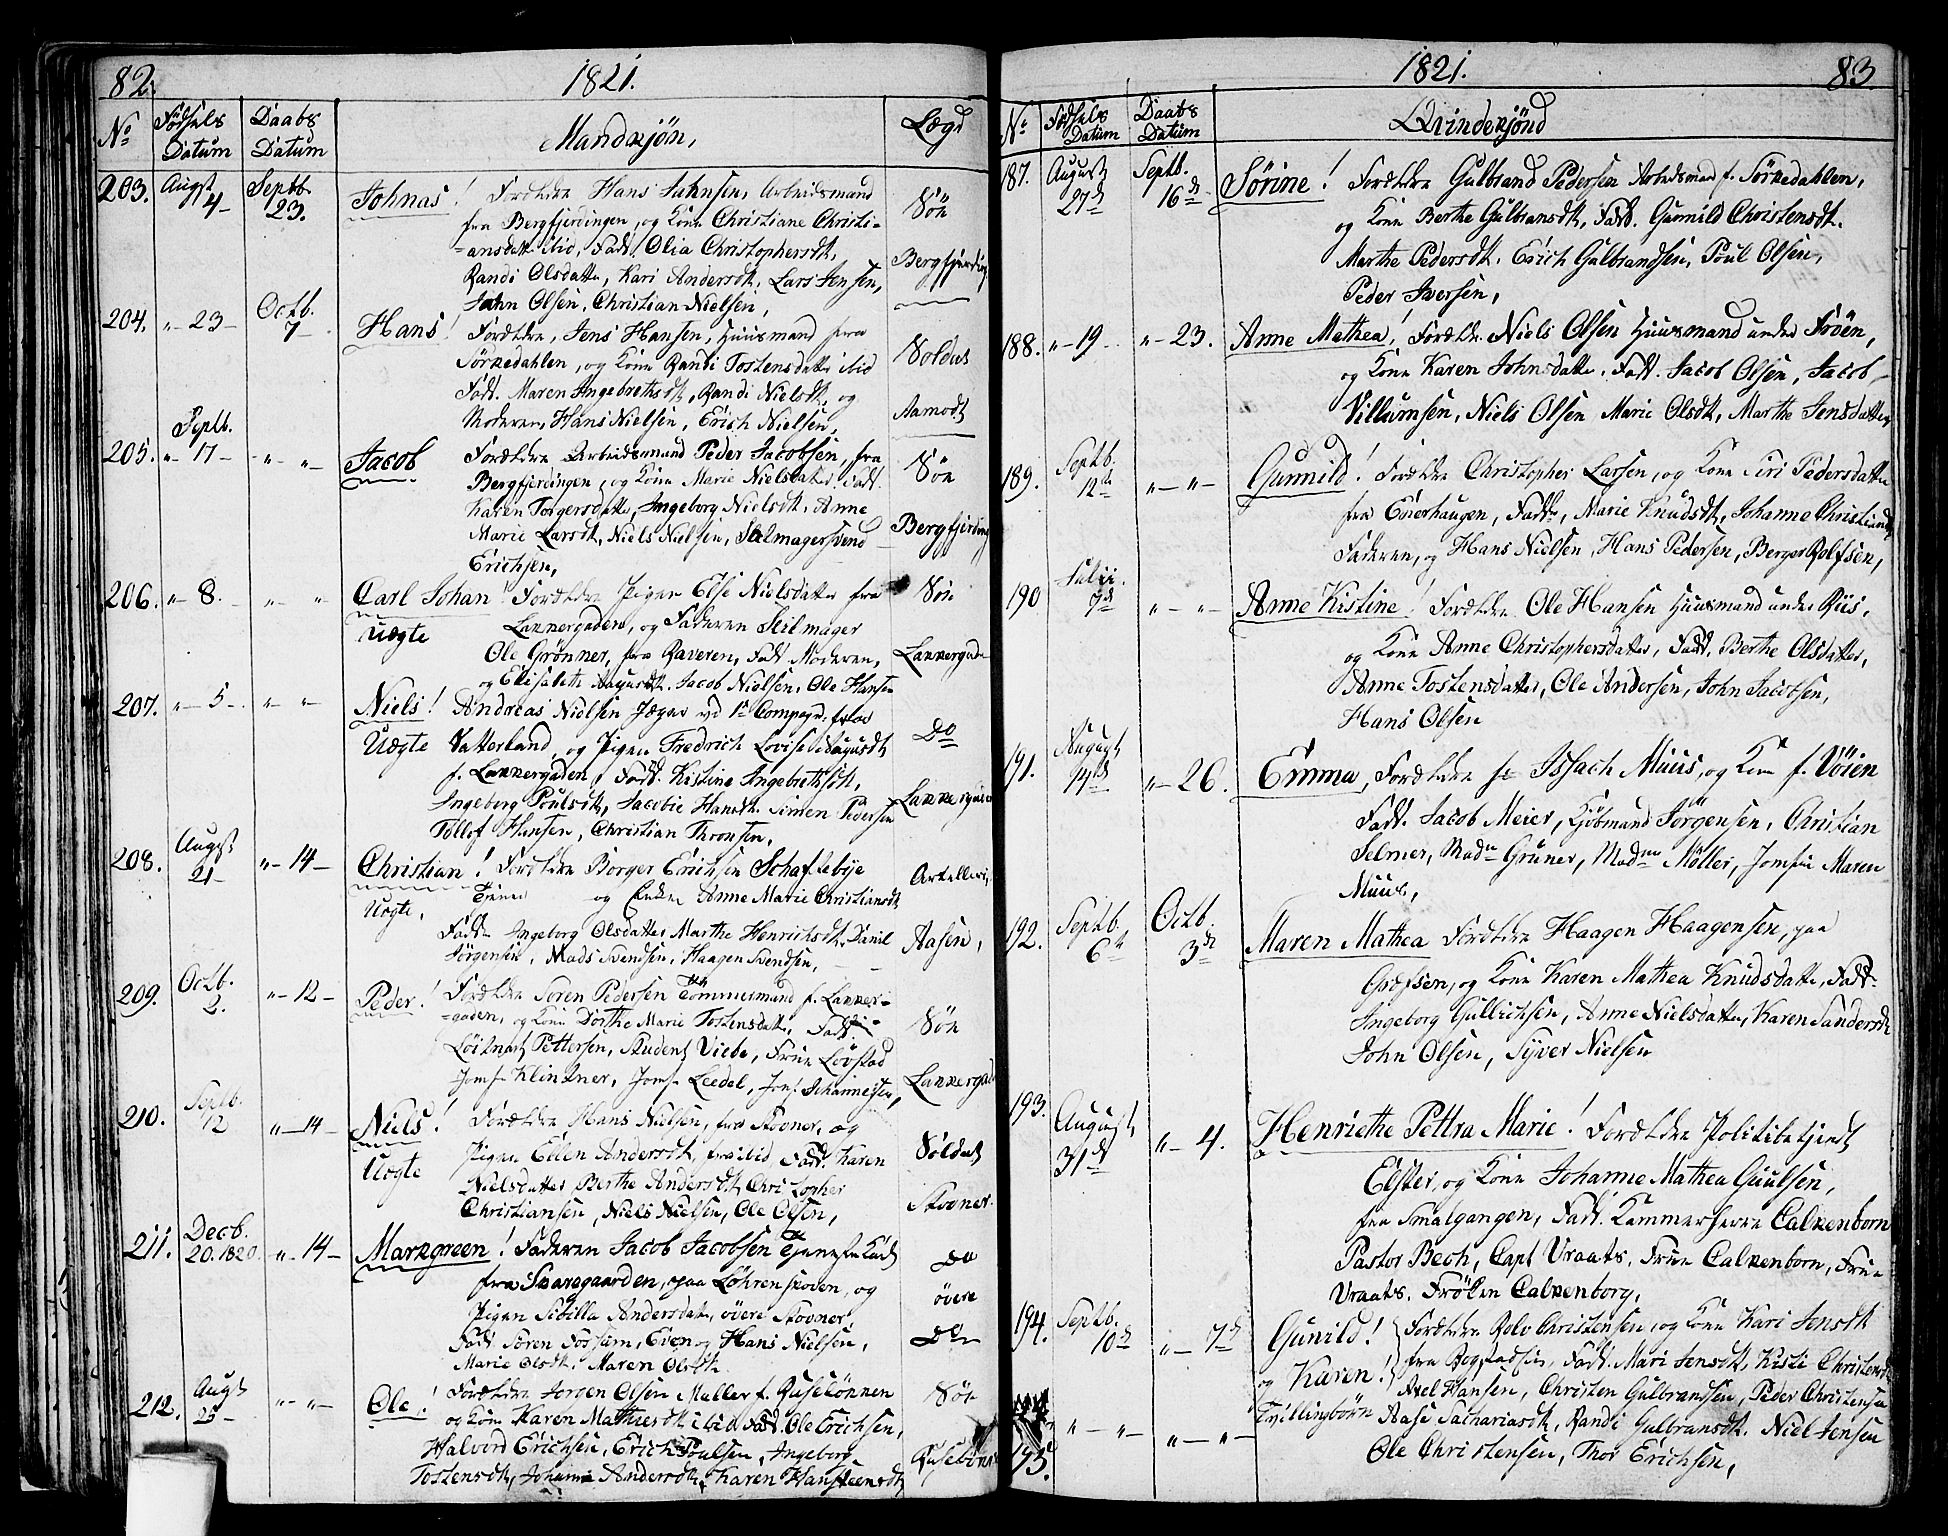 82.
1821.
No
Fødsels Datum
Daabs Datum
Mandkjøn,
Lægd
203. Augst 4 — Septb. 23. Johnas! Forældre Hans Jahnsen, Arbeidsmand Søn
fra Bergfjerdingen, og Kone Christiane Christi-
=ansdatt. ibid, Fadd. Olia Christophersdt, Bergfjerding
Randi Olsdatter, Kari Andersdt. Lars Jensen,
John Olsen, Christian Nielsen,
204. „ - 23 — Octb. 7 — Hans! Forældre, Jens Hansen, Huusmand fra
Sørkedahlen, og Kone Randi Tostensdatter ibid Soldat
Fadd. Maren Ingebrethsdt, Randi Nielsdt, og
Moderen, Hans Nielsen, Erich Nielsen, Aamodt
205. Septb. „ - 17 — „ „ — Jacob Forældre Arbeidsmand Peder Jacobsen, fra Søn
Bergfjerdingen, og Kone Marie Nielsdatter, Fadd.
Karen Torgersdatter, Ingeborg Nielsdt. Anne
Marie Larsdt, Niels Nielsen, Salmagersvend Bergfjerding
Erichsen,
206. „ - 8. — „ „ Carl Johan! Forældre Pigen Else Nielsdatter fra Søn
Uægte Lakkergaden, og Faderen Skilmager
Ole Grønner, fra Raveren, Fadd. Moderen, Lakkergade
og Elisabeth Augusdt. Jacob Nielsen, Ole Hansen
207. „ - 5 — „ „ Niels! Andreas Nielsen Jæger ved 1te Compagn. fra
Uægte Vatterland, og Pigen Fredrich Lovise Augusdt Do
f. Lakkergaden, Fadd. Kistine Ingebrethsdt,
Ingeborg Poulsdt, Jacobie Hansdt. Simen Pedersen
Tollof Hansen, Christian Thronsen.
208. Augst 21 — „ — 14 — Christian! Forældre Borger Erichsen Schaftebye
Uægte, Tjener og Enken Anne Marie Christiansdt
Fadd. Ingeborg Olsdatter Marthe Henrichsdt. Daniel Aasen,
Jörgensen, Mads Svendsen, Haagen Svendsen,
209. Octb. 2. „ — 12 — Peder! Forældre Søren Pedersen Tömmermand f. Lakker-
=gaden, og Kone Dorthe Marie Tostensdatter, Fadd. Søn
Löitnant Pettersen, Student Viebe, Frue Løvstad
Jomf. Klintner, Jomf. Leedel, Jomf. Johannesen, Lakkergade
210. Septb. 12 „ — 14 — Niels! Forældre Hans Nielsen, fra Stovner, og
Uægte Pigen Ellen Andersdt, fra ibid, Fadd. Karen Soldat
Nielsdatter Berthe Andersdt, Christopher
Christiansen, Niels Nielsen, Ole Olsen, Stovner
211. Decb. 20. 1820. „ — 14 — Markgreen! Faderen Jacob Jacobsen
fra paa Løhrenskoven, og Do
Pigen Sibilla Andersdatter, övere Stovner, övere
Fadd. Søren Fossum, Even og Hans Nielsen, Do
Marie Olsdt. Maren Olsdt.
212. Augst 25 — „ — „ — Ole! Forældre Jörgen Olsen Møller f. Rusetönnen Søn
og Kone Karen Mathisdt ibid, Fadd. Ole Erichsen,
Halvord Erichsen, Erich Poulsen, Ingeborg
Tostensdt, Johanne Andersdt, Karen Hansteensdt
1821.
83.
No
Fødsels Datum
Daabs Datum
Qvindekjönd
187. August 27de Septb. 16de Sørine! Forældre Gulbrand Pedersen Arbeidsmand f. Sörkedahlen,
og Kone Berthe Gulbransdt, Fadd. Gunnild Christensdt.
Marthe Pedersdt. Erich Gulbrandsen, Poul Olsen,
Peder Iversen,
188. „ — 19 — „ — 23. Anne Mathea! Forældre Niels Olsen Huusmand under Fröen,
og Kone Karen Johnsdatter. Fadd. Jacob Olsen, Jacob
Villumsen, Niels Olsen Marie Olsdt, Marthe Jensdatter
189. Septb. 12te „ — „ — Gunnild! Forældre Christopher Larsen, og Kone Siri Pedersdatter
fra Enerhaugen, Fadd. Marie Knudsdt, Johanne Christiansdt
Faderen, og Hans Nielsen, Hans Pedersen, Berger Rolfsen,
190 Julii. 7de „ — „ — Anne Kistine! Forældre Ole Hansen Huusmand under Riis,
og Kone Anne Christophersdatter, Fadd. Berthe Olsdatter,
Anne Tostensdatter, Ole Andersen, John Jacobsen,
Hans Olsen
191. August 14de „ — 26. Emma, Forældre Issach Muus, og Kone f. Vöien
Fadd. Jacob Meier, Kjöbmand Jörgensen, Christian
Selmer, Madm Grüner, Madme Møller, Jomfrue Maren
Muus,
192. Septb. 6te Octb. 3de Maren Mathea Forældre Haagen Haagensen, paa
Græfsen, og Kone Karen Mathea Knudsdatter, Fadd.
Ingeborg Gullichsen, Anne Nielsdatter, Karen Sandersdt
John Olsen, Syver Nielsen
193. August 31te „ — 4. Henriethe Pettra Marie! Forældre Politibetjent
Elster, og Kone Johanne Mathea Guulsen,
fra Smalgangen, Fadd. Kammerherre Calkenborn
Pastor Bech, Capt Vraats, Frue Calkenborn, Frue
Vraats, Fröken Calkenborg,
194. Septb. 10de „ — 7de Gunild! Forældre Rolv Christensen, og Kone Kari Jensdt
og Karen! fra Bogstadsen, Fadd. Mari Jensdt, Kisti Christensdt
Tvillingbörn Axel Hansen, Christen Gulbrandsen, Peder Christensen
195. „ — „ — „ — „ — Aase Sachariasdt, Randi Gulbransdt. Niel Jensen
Ole Christensen, Thor Erichsen,